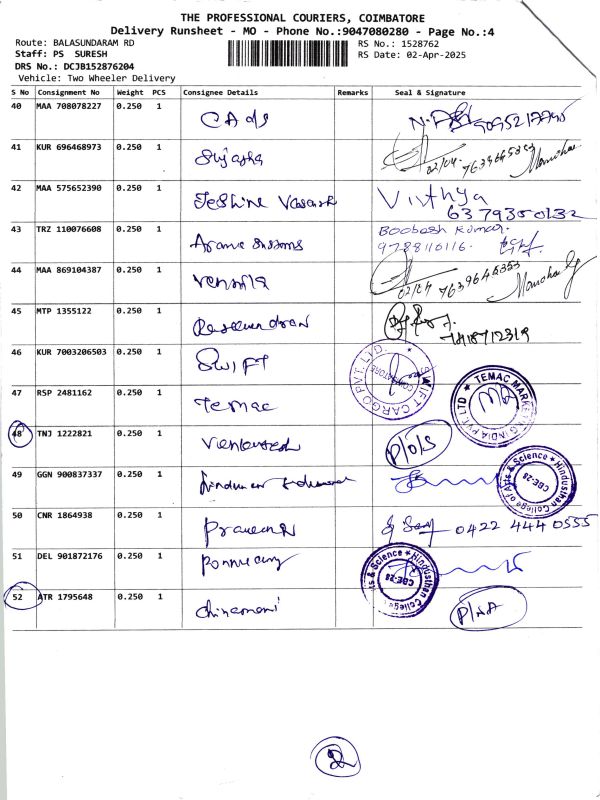 THE PROFESSIONAL COURIERS, COIMBATORE
Delivery Runsheet - MO - Phone No.:9047080280 - Page No.:4
Route: BALASUNDARAM RD
RS No.: 1528762
Staff: PS SURESH
RS Date: 02-Apr-2025
DRS No.: DCJB152876204
Vehicle: Two Wheeler Delivery
S No Consignment No Weight PCS Consignee Details Remarks Seal & Signature
40 MAA 708078227 0.250 1 CADS
41 KUR 696468973 0.250 1 Sujatha 02/04
42 MAA 575652390 0.250 1 Jeshine Vasanth Vinthya
6379350132
43 TRZ 110076608 0.250 1 Boobash Kumar.
9788110116.
44 MAA 869104387 0.250 1 Vennila 02/04 7639645353
45 MTP 1355122 0.250 1
46 KUR 7003206503 0.250 1 SWIFT SWIFT CARGO PVT. LTD. COIMBATORE
47 RSP 2481162 0.250 1 Temac TEMAC MARKETING INDIA PVT LTD
48 TNJ 1222821 0.250 1 P/O/S
49 GGN 900837337 0.250 1 Hindusthan College of Arts & Science CBE-28
50 CNR 1864938 0.250 1 Praveen 0422 444 0555
51 DEL 901872176 0.250 1 Hindusthan College of Arts & Science CBE-28
52 ATR 1795648 0.250 1 Chinamani P/NA
2